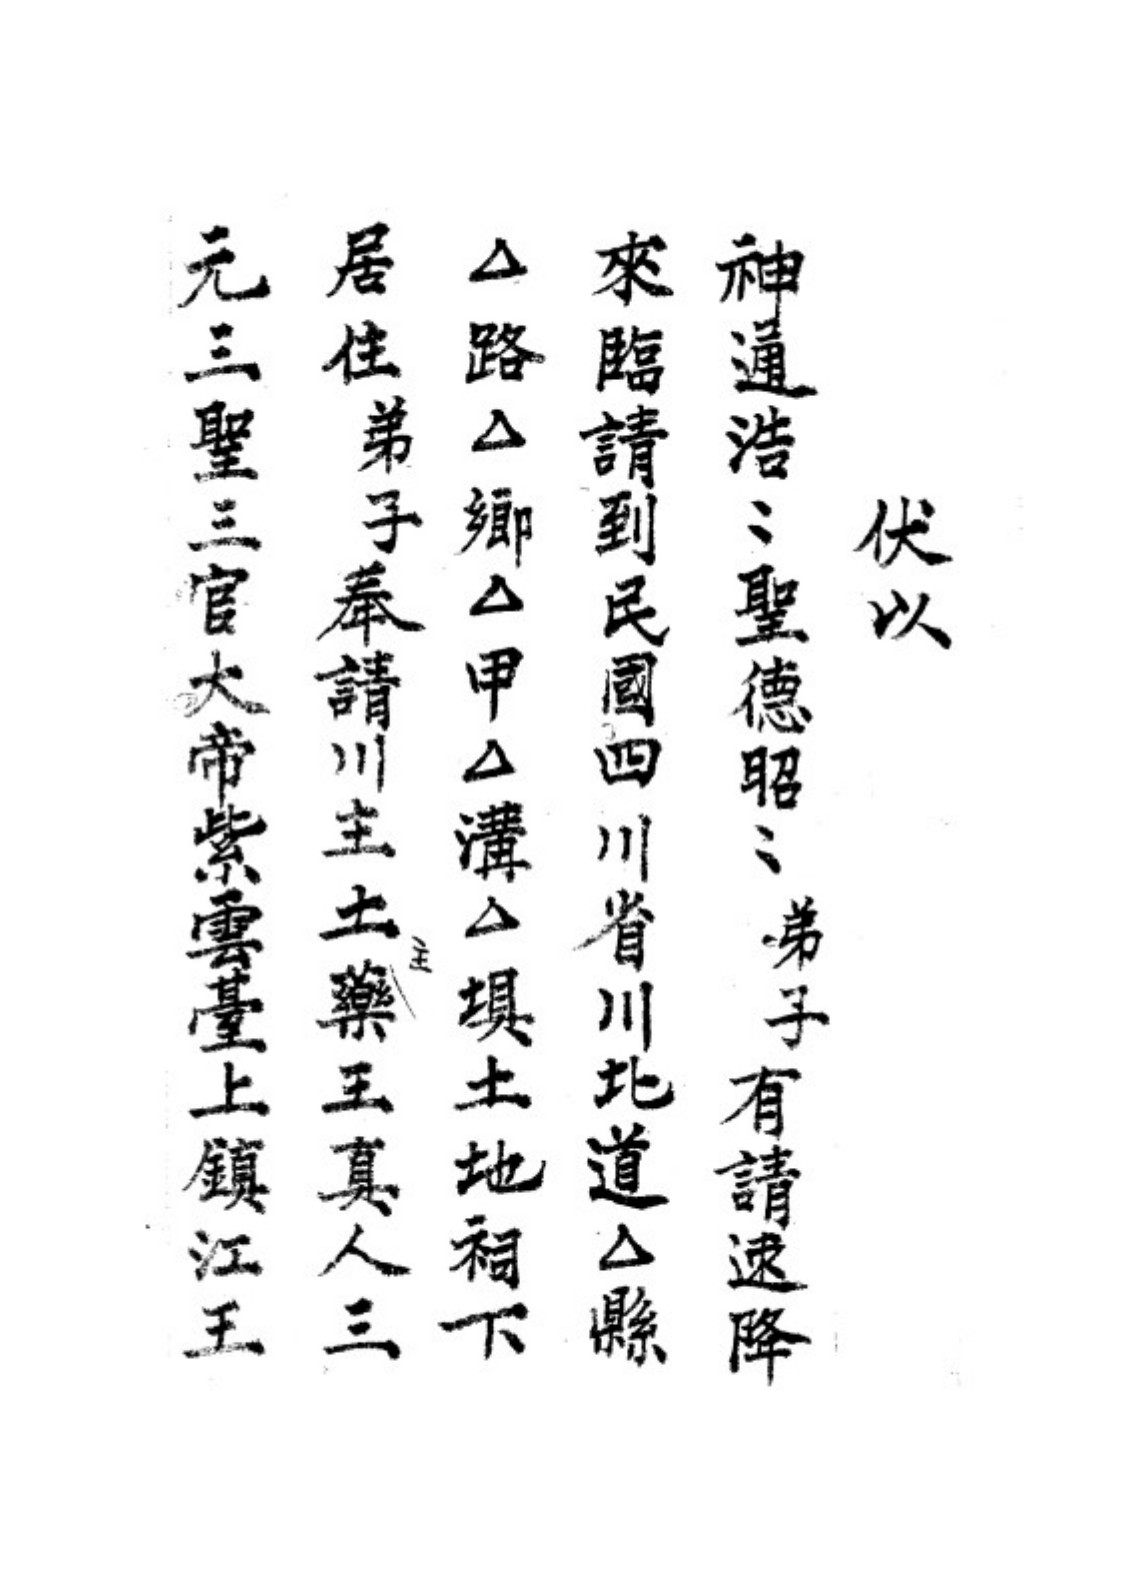 伏以
神通浩〻聖德昭〻弟子有請速降
來臨請到民國四川省川北道△縣
△路△鄉△甲△溝△埧土地祠下
居住弟子奉請川主土主藥王真人三
元三聖三官大帝紫雲臺上鎮江王